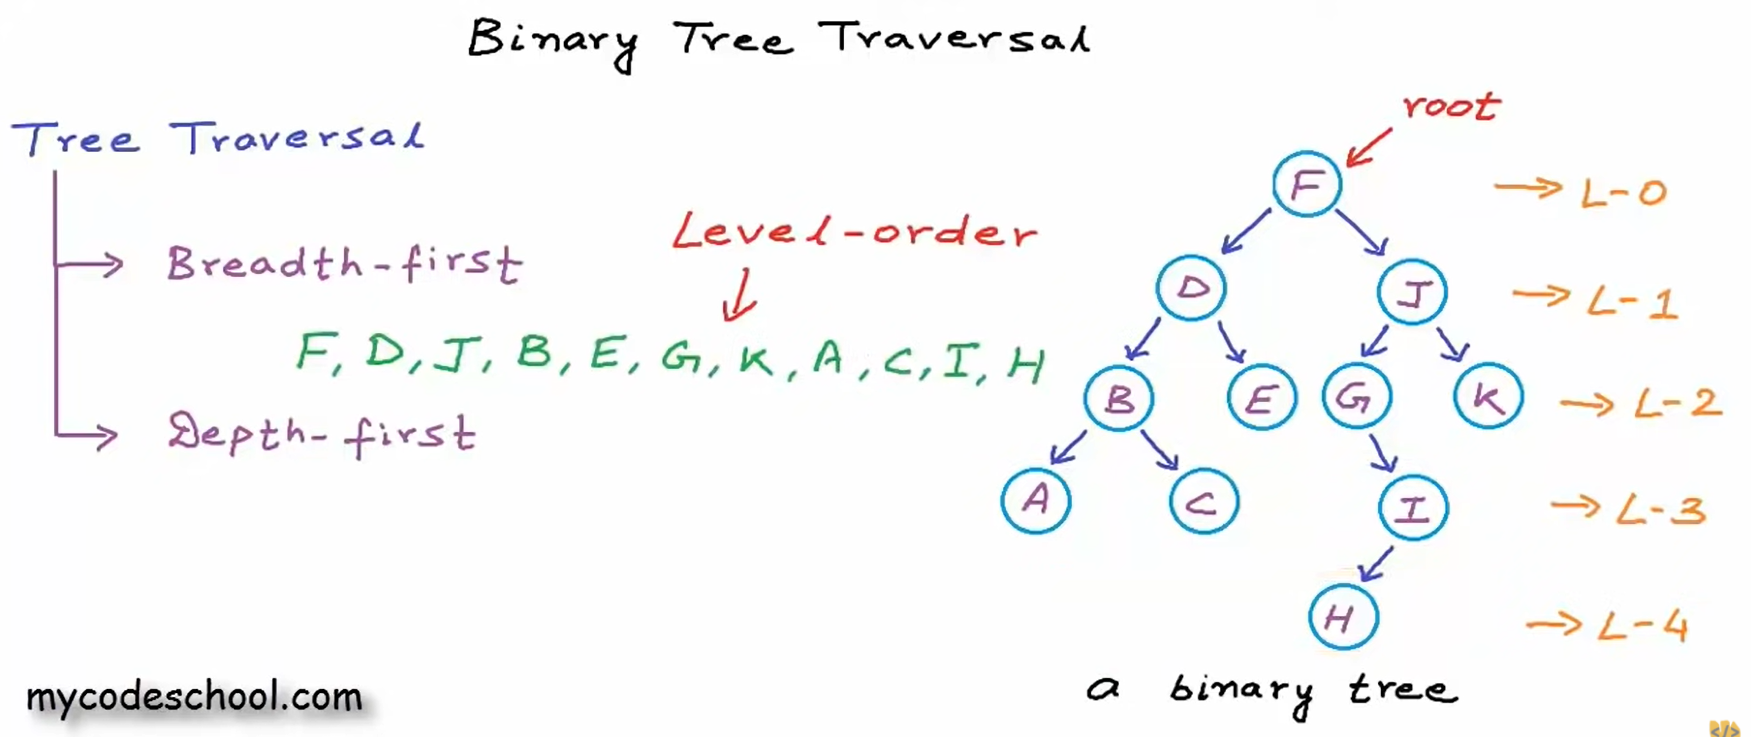 Binary Tree Traversal
Tree Traversal
Breadth-first
Level-order
F, D, J, B, E, G, K, A, C, I, H
Depth-first
root
F
L-0
D
J
L-1
B
E
G
K
L-2
A
C
I
L-3
H
L-4
a binary tree
mycodeschool.com